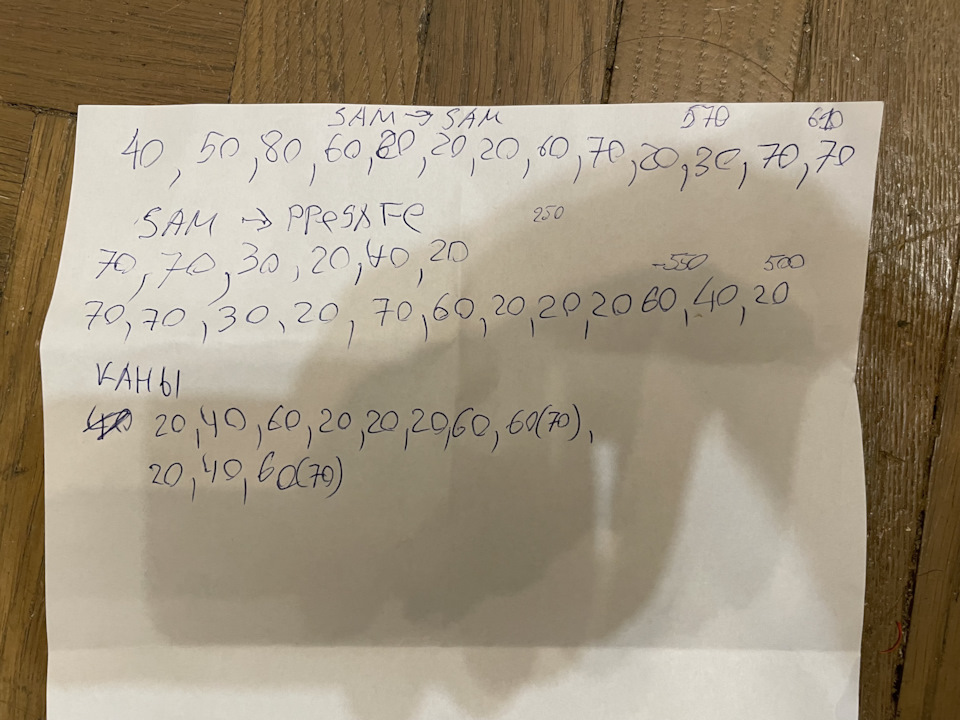 SAM → SAM 570 610
40, 50, 80, 60, 80, 20, 20, 60, 70, 20, 30, 70, 70
SAM → 250
70, 70, 30, 20, 40, 20
-550 500
70, 70, 30, 20, 70, 60, 20, 20, 20 60, 40, 20
КАНЫ
20, 40, 60, 20, 20, 20, 60, 60(70),
20, 40, 60(70)